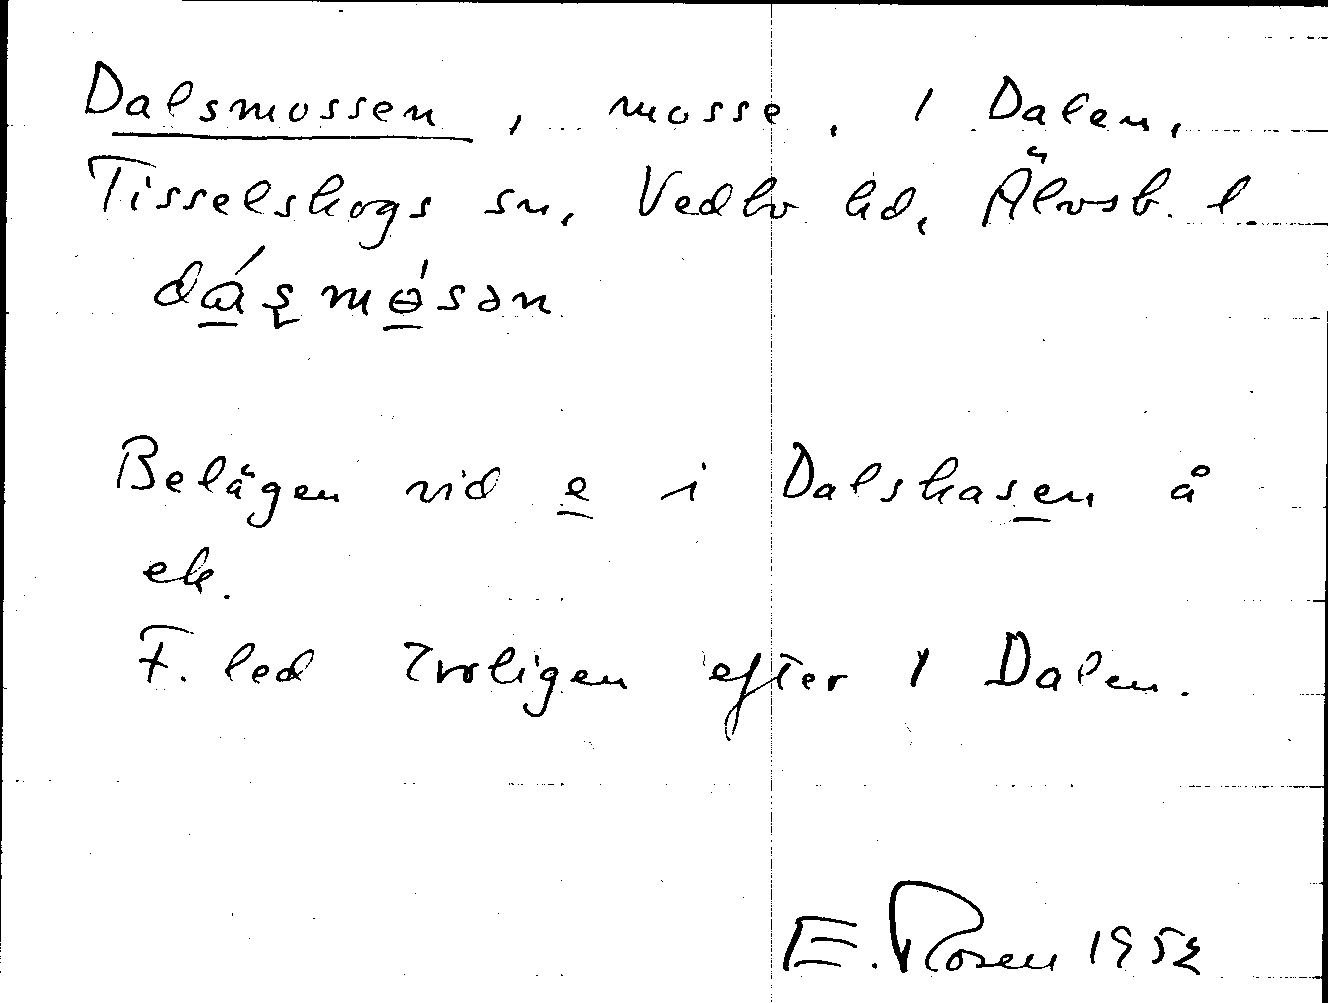 Dalsmossen, mosse. 1 Dalen,
Tisselskogs sn, Vedbo hd, Älvsb. l.
Belägen vid e i Dalskasen å
ek.
F. led troligen efter 1 Dalen.
E. Rosen 1952